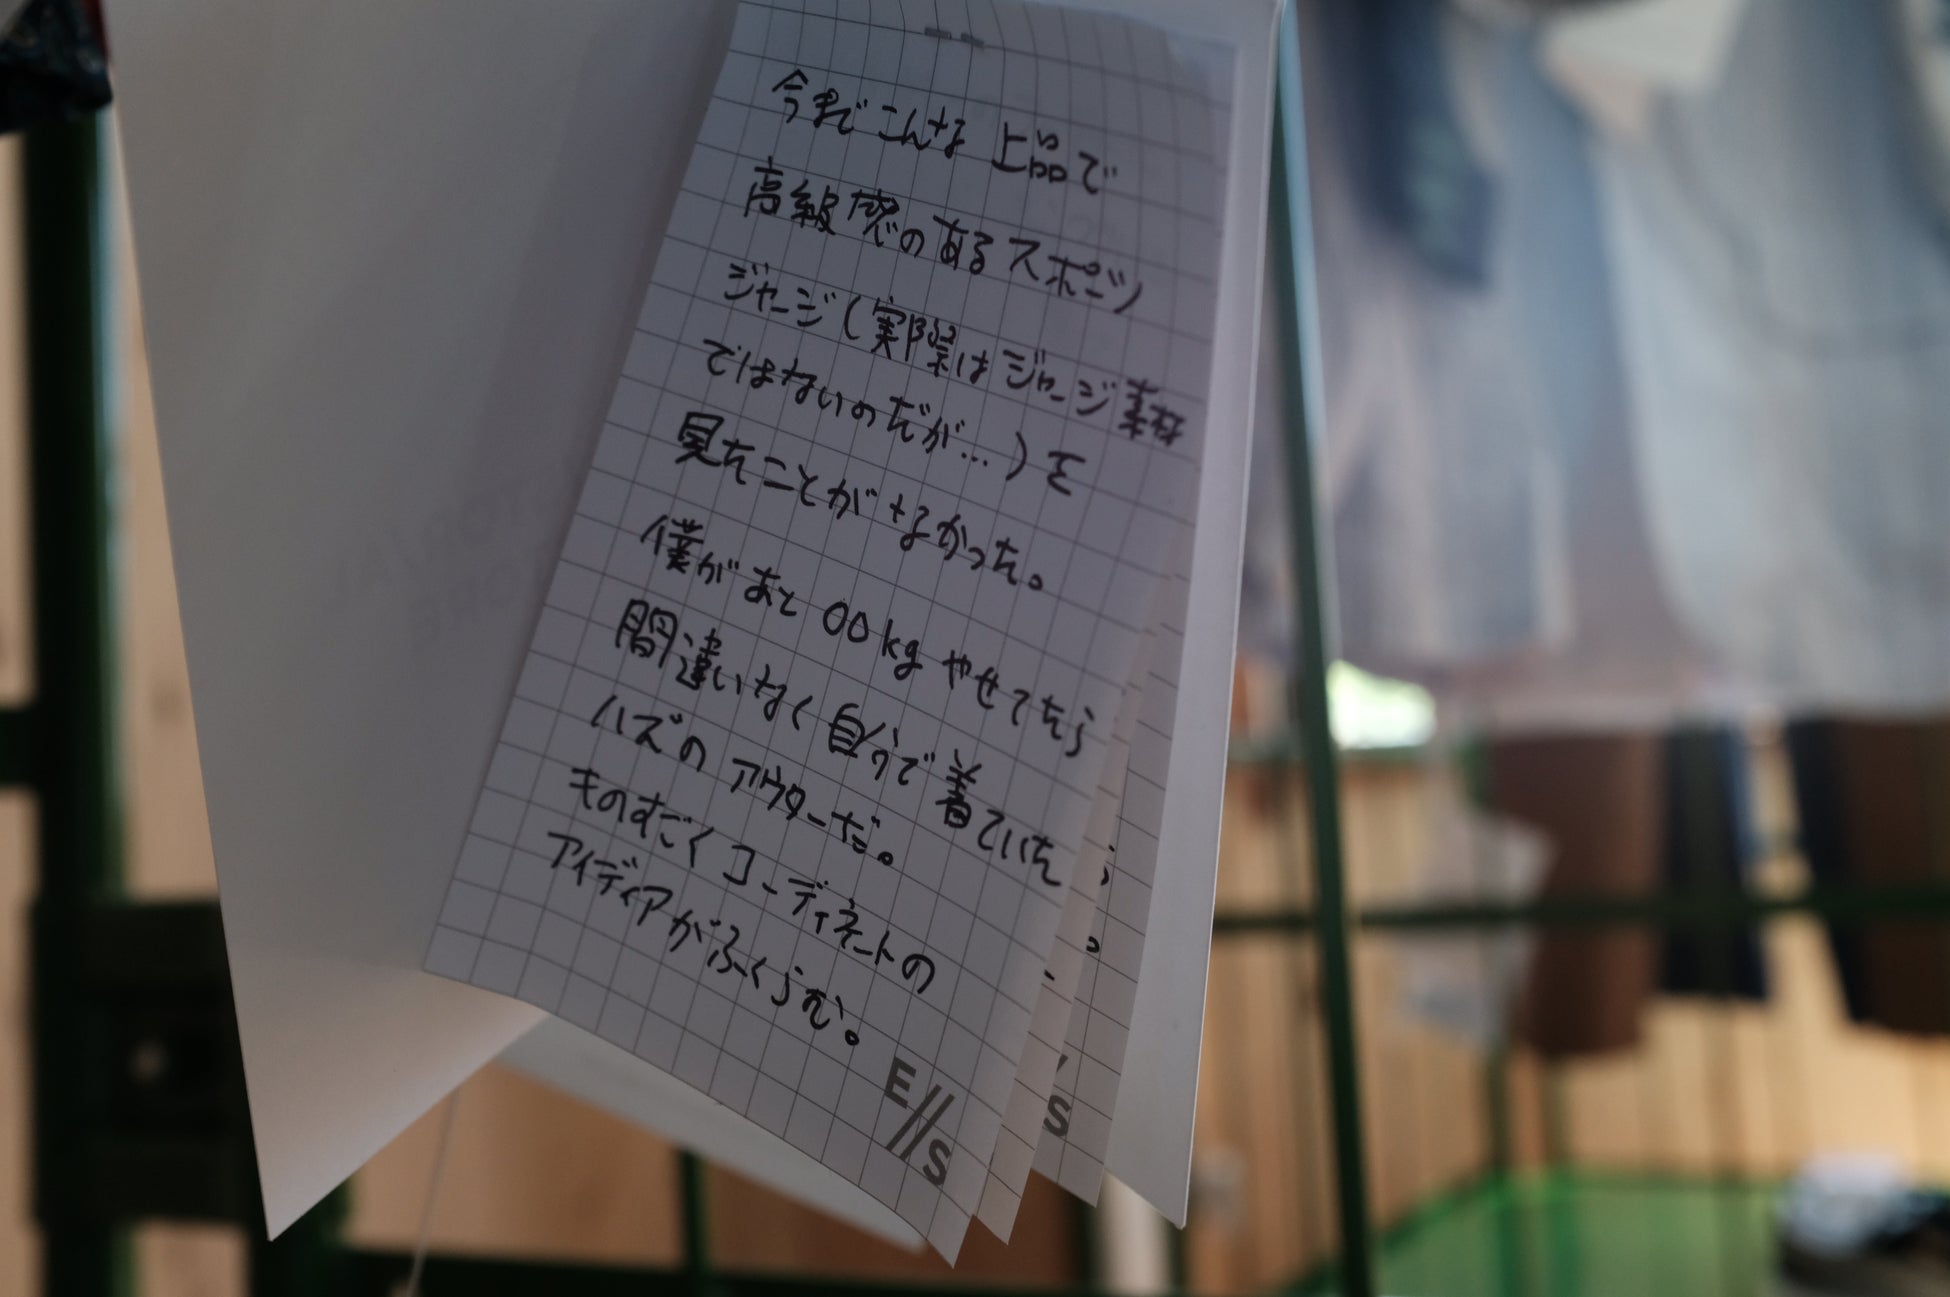 今までこんな上品で
高級感のあるスポーツ
ジャージ(実際はジャージ素材
ではないのだが…)を
見たことがなかった。
僕があと00kgやせてたら
間違いなく自分で着ていた
ハズのアウターだ。
ものすごくコーディネートの
アイディアがふくらむ。
E//S
S